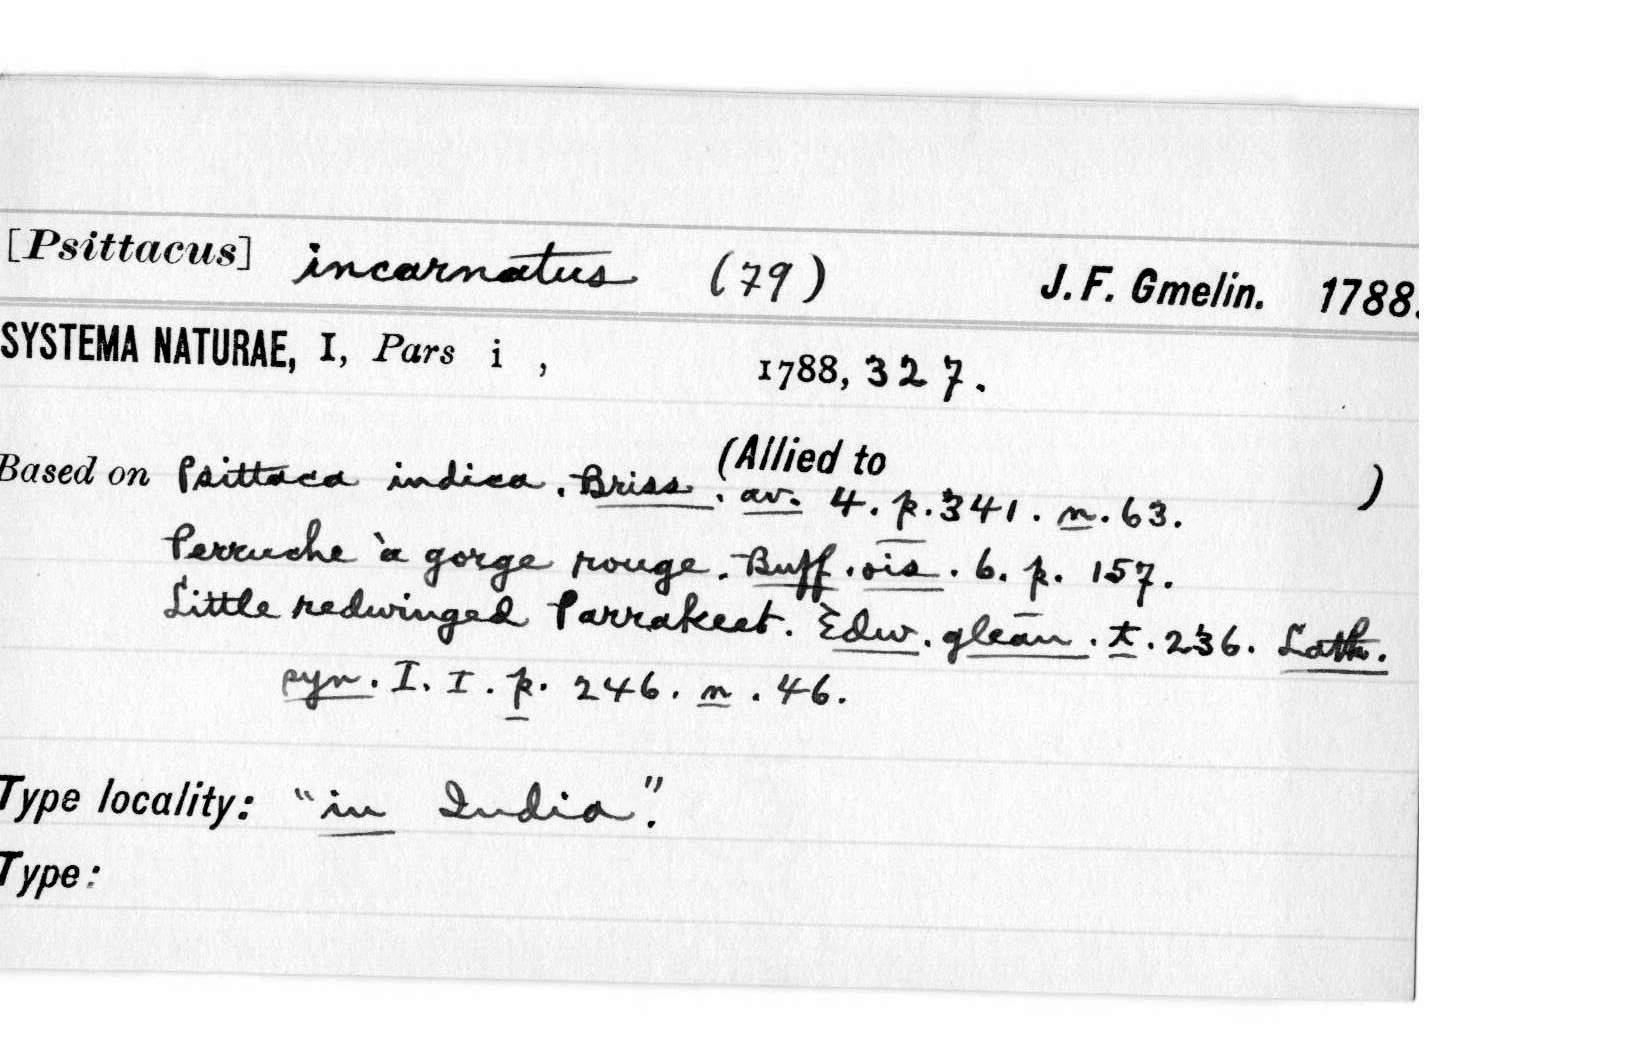 [Psittacus] incarnatus (79) J. F. Gmelin. 1788.
SYSTEMA NATURAE, I, Pars i , 1788, 327.
(Allied to )
Based on Psittaca indica. Briss. av. 4. p. 341. n. 63.
Perruche à gorge rouge. Buff. ois. 6. p. 157.
Little redwinged Parrakeet. Edw. glean. t. 236. Lath.
syn. I. I. p. 246. n. 46.
Type locality: "in India".
Type: